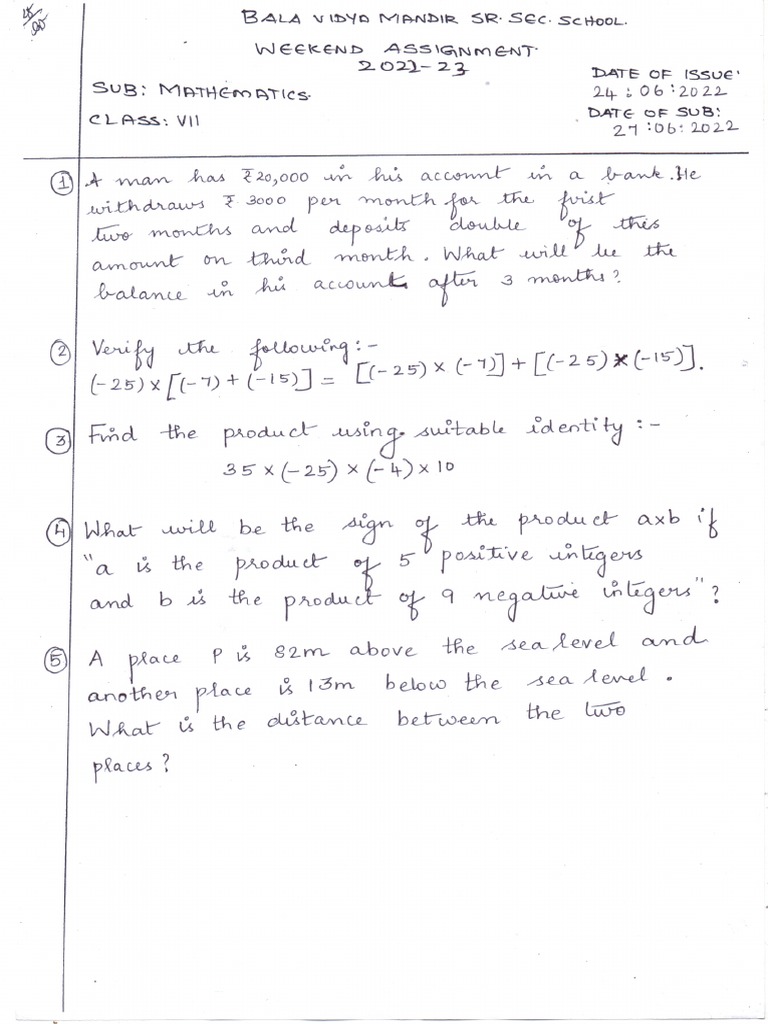 BALA VIDYA MANDIR SR. SEC. SCHOOL.
WEEKEND ASSIGNMENT.
2022-23
SUB: MATHEMATICS.
CLASS: VII
DATE OF ISSUE:
24:06:2022
DATE OF SUB:
27:06:2022
① A man has ₹20,000 in his account in a bank. He
withdraws ₹ 3000 per month for the first
two months and deposits double of this
amount on third month. What will be the
balance in his account after 3 months?
② Verify the following:-
(-25)×[(-7)+(-15)] = [(-25)×(-7)]+[(-25)×(-15)].
③ Find the product using suitable identity:-
35×(-25)×(-4)×10
④ What will be the sign of the product axb if
"a is the product of 5 positive integers
and b is the product of 9 negative integers"?
⑤ A place P is 82m above the sea level and
another place is 13m below the sea level.
What is the distance between the two
places?